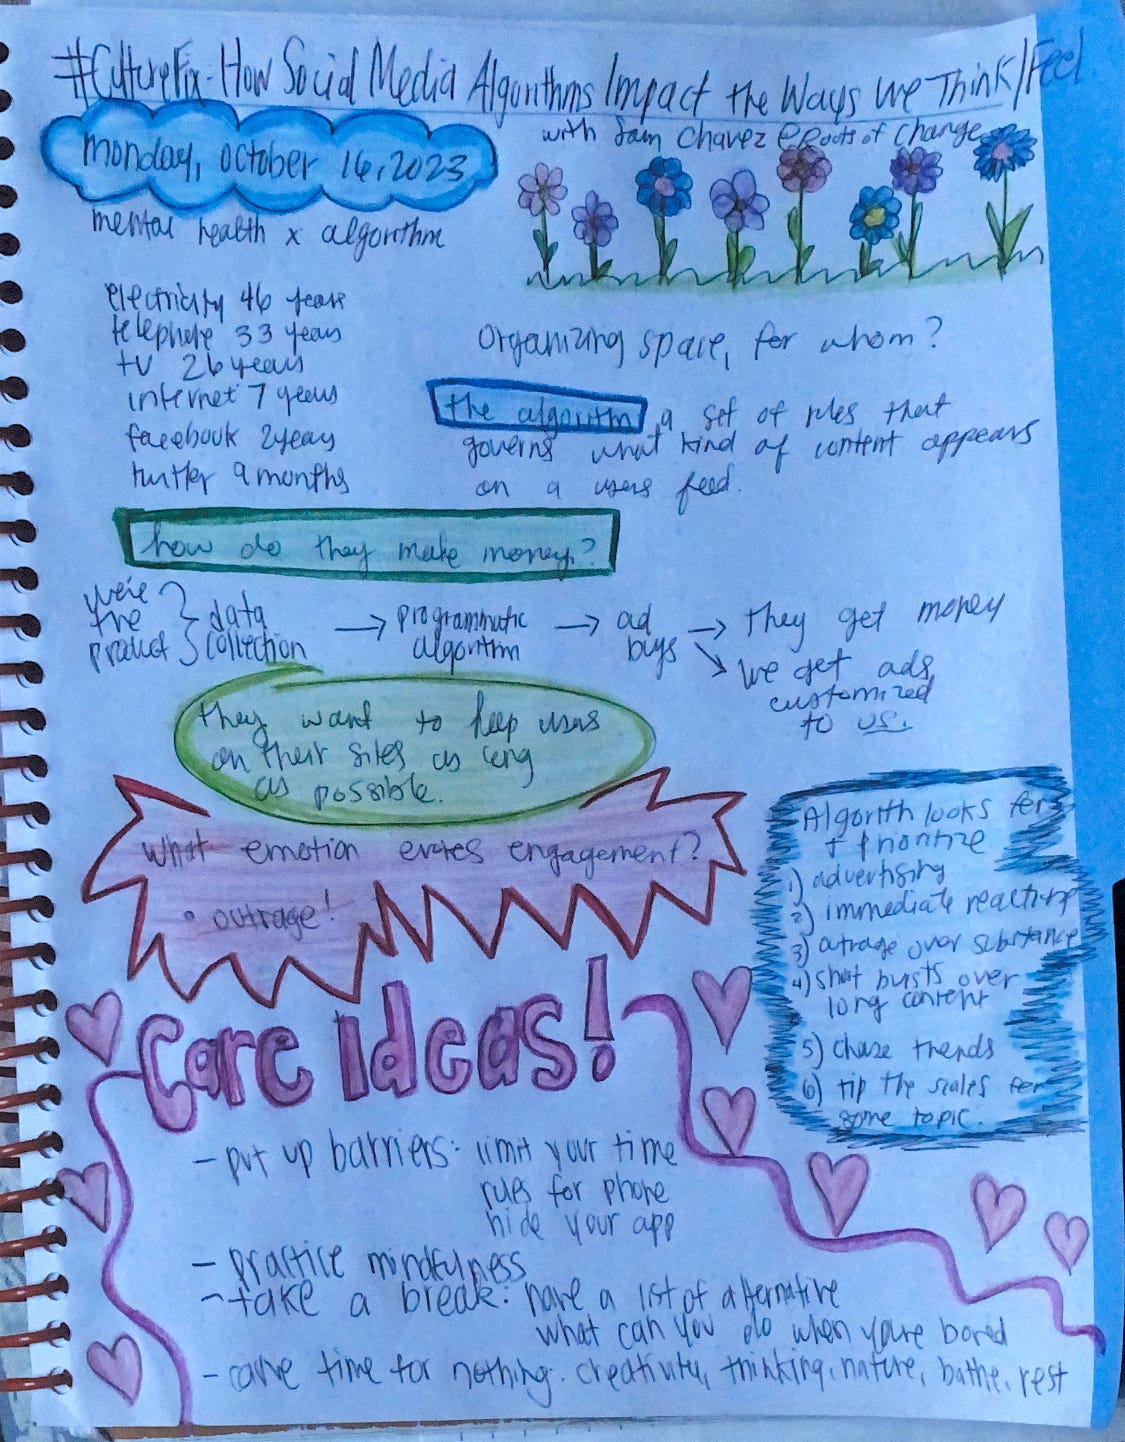 #CultureFix-How Social Media Algorithms Impact the Ways We Think/Feel
with Sam Chavez @Roots of Change
monday, october 16, 2023
mental health x algorithm
electricity 46 years
telephone 33 years
tv 26 years
internet 7 years
facebook 2 years
twitter 9 months
Organizing space, for whom?
the algorithm a set of rules that
governs what kind of content appears
on a users feed.
how do they make money?
we're
the
product } data
collection → programmatic
algorithm → ad
buys → they get money
↘ we get ads
customized
to us.
they want to keep users
on their sites as long
as possible.
What emotion evokes engagement?
• outrage!
Algorith looks for
+ prioritize
1) advertising
2) immediate reactions
3) outrage over substance
4) short bursts over
long content
5) chase trends
6) tip the scales for
some topic.
Care Ideas!
- put up barriers: limit your time
rules for phone
hide your app
- practice mindfulness
- take a break: have a list of alternative
what can you do when you're bored
- carve time for nothing: creativity, thinking, nature, bathe, rest